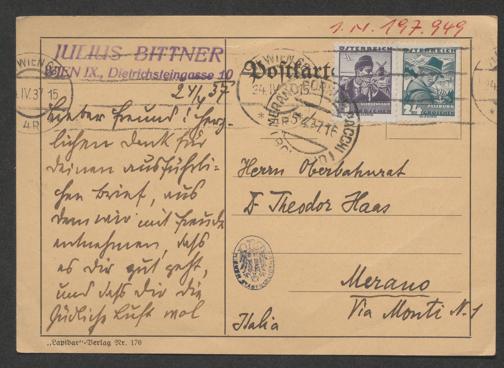 1. N. 197.949
JULIUS BITTNER
WIEN IX., Dietrichsteingasse 10
Postkarte
ÖSTERREICH
ÖSTERREICH
24
WIEN
24.IV.37 15
24/IV 37
Lieber Freund! Herz-
lichen Dank für
Deinen ausführli-
chen Brief, aus
dem wir mit Freude
entnehmen, daß
es Dir gut geht,
und daß Dir die
südliche Luft wol
Herrn Oberbahnrat
Dr Theodor Haas
Merano
Via Monti N. 1
Italia
„Lapidar"-Verlag Nr. 176